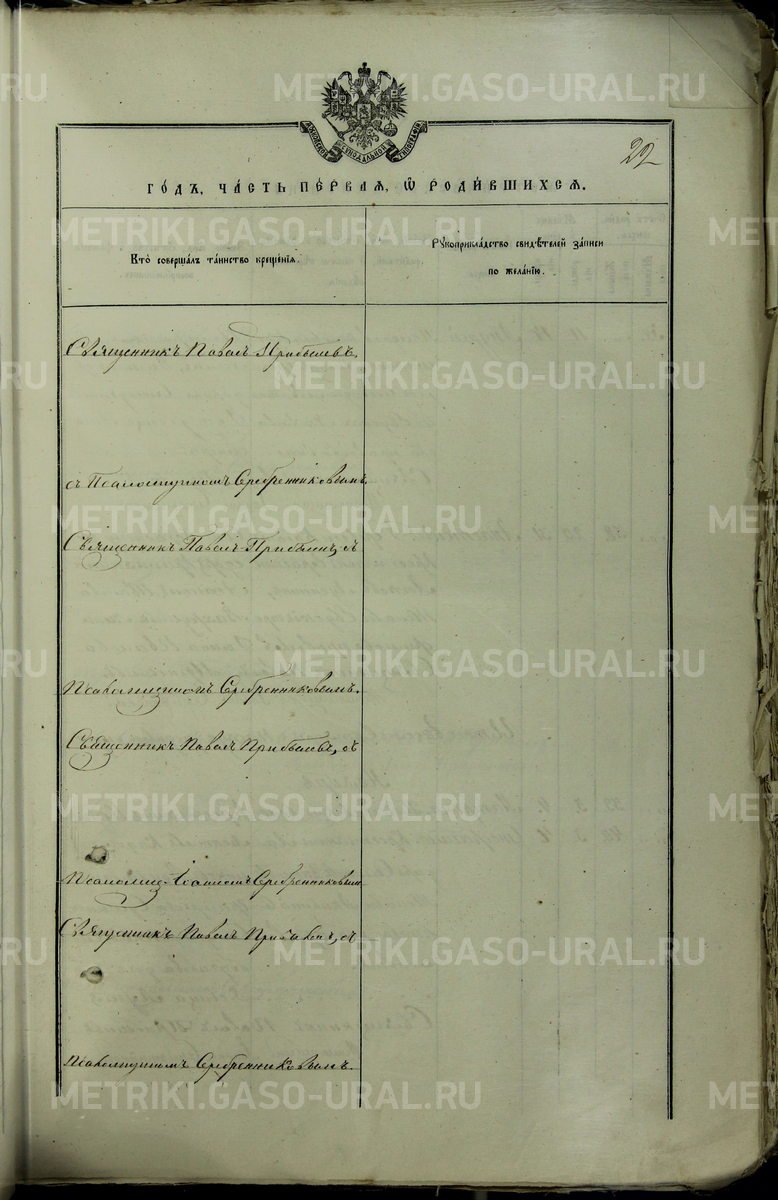 22
го́дъ, ча́сть пе́рвая, ѡ҆ роди́вшихся.
Кто̀ соверша́лъ та́инство креще́нїѧ.
Рꙋкоприкла́дство свидѣ́телей за́писи
по жела́нїю.
Священникъ Павелъ Прибылевъ,
съ Псаломщикомъ Серебренниковымъ,
Священникъ Павелъ Прибылевъ, съ
Псаломщикомъ Серебренниковымъ.
Священникъ Павелъ Прибылевъ, съ
Псаломщ. Серебренниковымъ
Священникъ Павелъ Прибылевъ, съ
Псаломщикомъ Серебренниковымъ.
METRIKI.GASO-URAL.RU